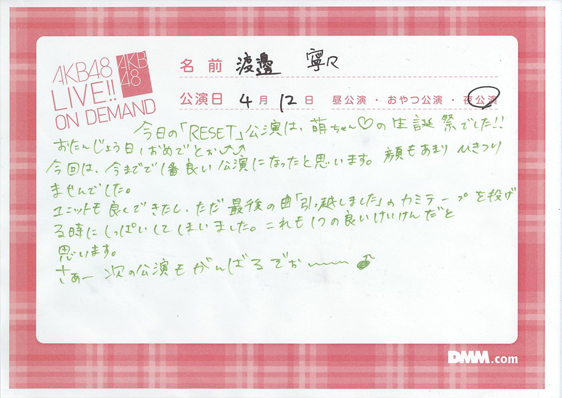 AKB48
LIVE!!
ON DEMAND
AKB
48
名前 渡邊 寧々
公演日 4月12日 昼公演・おやつ公演・夜公演
今日の「RESET」公演は、萌ちゃん♡の生誕祭でした!!
おたんじょう日おめでとぉ↗↗
今回は、今までで1番良い公演になったと思います。顔もあまりひきつり
ませんでした。
ユニットも良くできたし、ただ最後の曲「引っ越しました」のカミテープを投げ
る時にしっぱいしてしまいました。これも1つの良いけいけんだと
思います。
さぁー次の公演もがんばるぞぉー
DMM.com